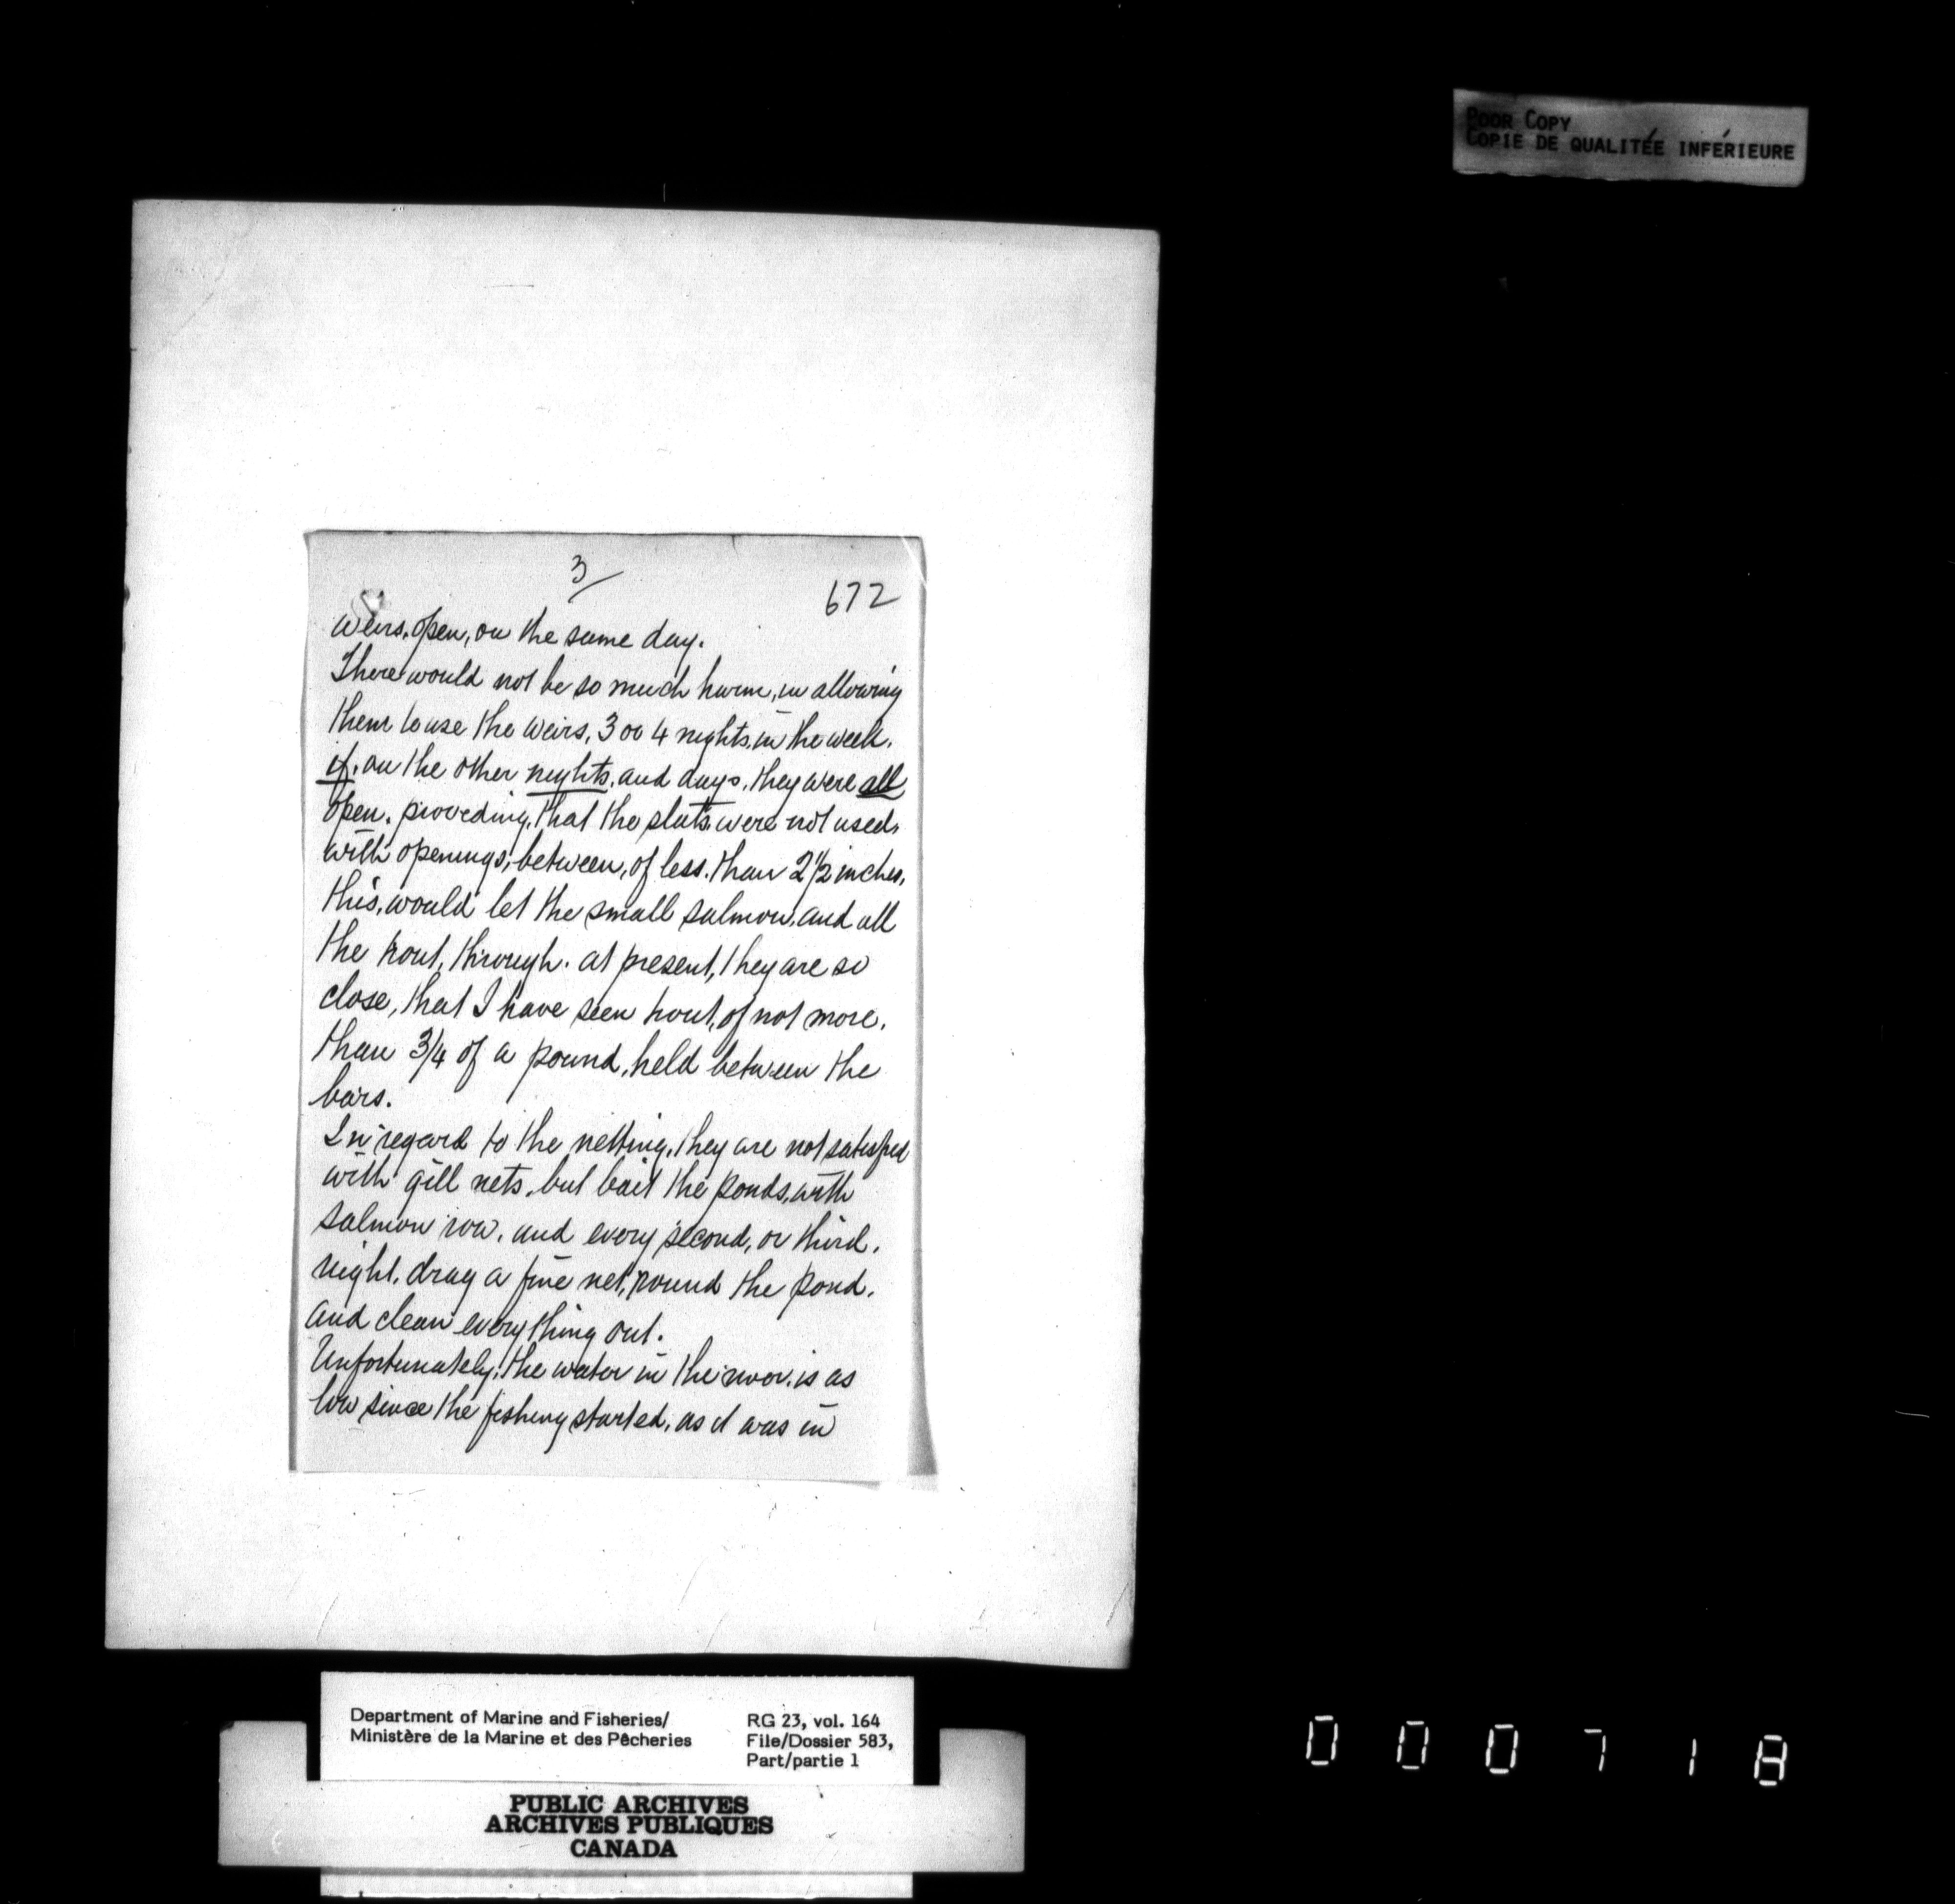 POOR COPY
COPIE DE QUALITÉE INFÉRIEURE
3/
672
weirs, open, on the same day.
There would not be so much harm, in allowing
them to use the weirs, 3 or 4 nights, in the week.
if, on the other nights, and days, they were all
open, proveding, that the slats were not used,
with openings, between, of less, than 2 1/2 inches,
this, would let the small salmon, and all
the trout, through. at present, they are so
close, that I have seen trout, of not more,
than 3/4 of a pound, held between the
bars.
In regard to the netting, they are not satisfied
with gill nets, but bait the ponds, with
salmon row, and every second, or third,
night, drag a fine net, round the pond,
and clean everything out.
Unfortunately, the water in the river, is as
low since the fishing started, as it was in
Department of Marine and Fisheries/
Ministère de la Marine et des Pêcheries
RG 23, vol. 164
File/Dossier 583,
Part/partie 1
PUBLIC ARCHIVES
ARCHIVES PUBLIQUES
CANADA
000718